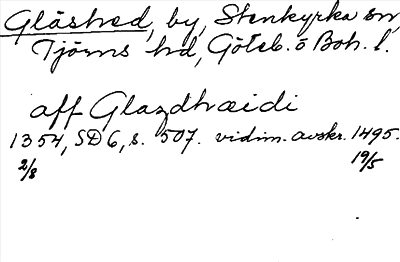 Glåshed, by, Stenkyrka sn,
Tjörns hd, Göteb. o Boh. l.
aff Glazdhæidi
1354, SD 6, s. 507. vidim. avskr. 1495.
2/8 19/5